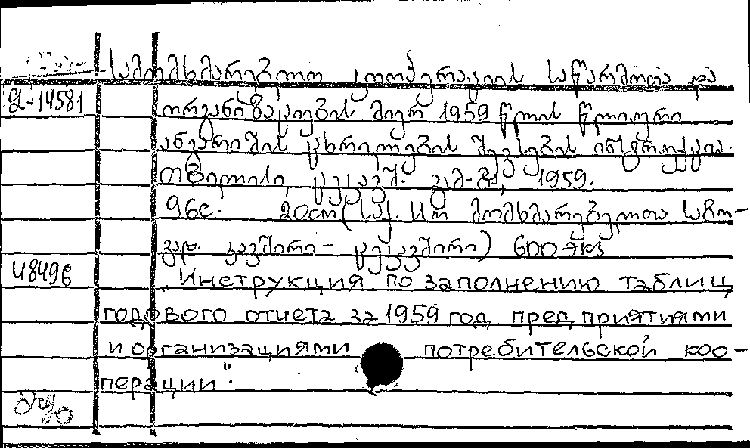 სამომხმარებლო კოოპერაციის საწარმოთა და
ორგანიზაციების მიერ 1959 წლის წლიური
ანგარიშის ცხრილების შევსების ინსტრუქცია.
თბილისი, ცეკავშ. გამ-ბა, 1959.
96с. 20cm (საქ. სსრ მომხმარებელთა საზო-
გად. კავშირი - ცეკავშირი) 600 ეგზ
48496 "Инструкция по заполнению таблиц
годового отчета за 1959 год предприятиями
и организациями потребительской коо-
перации".